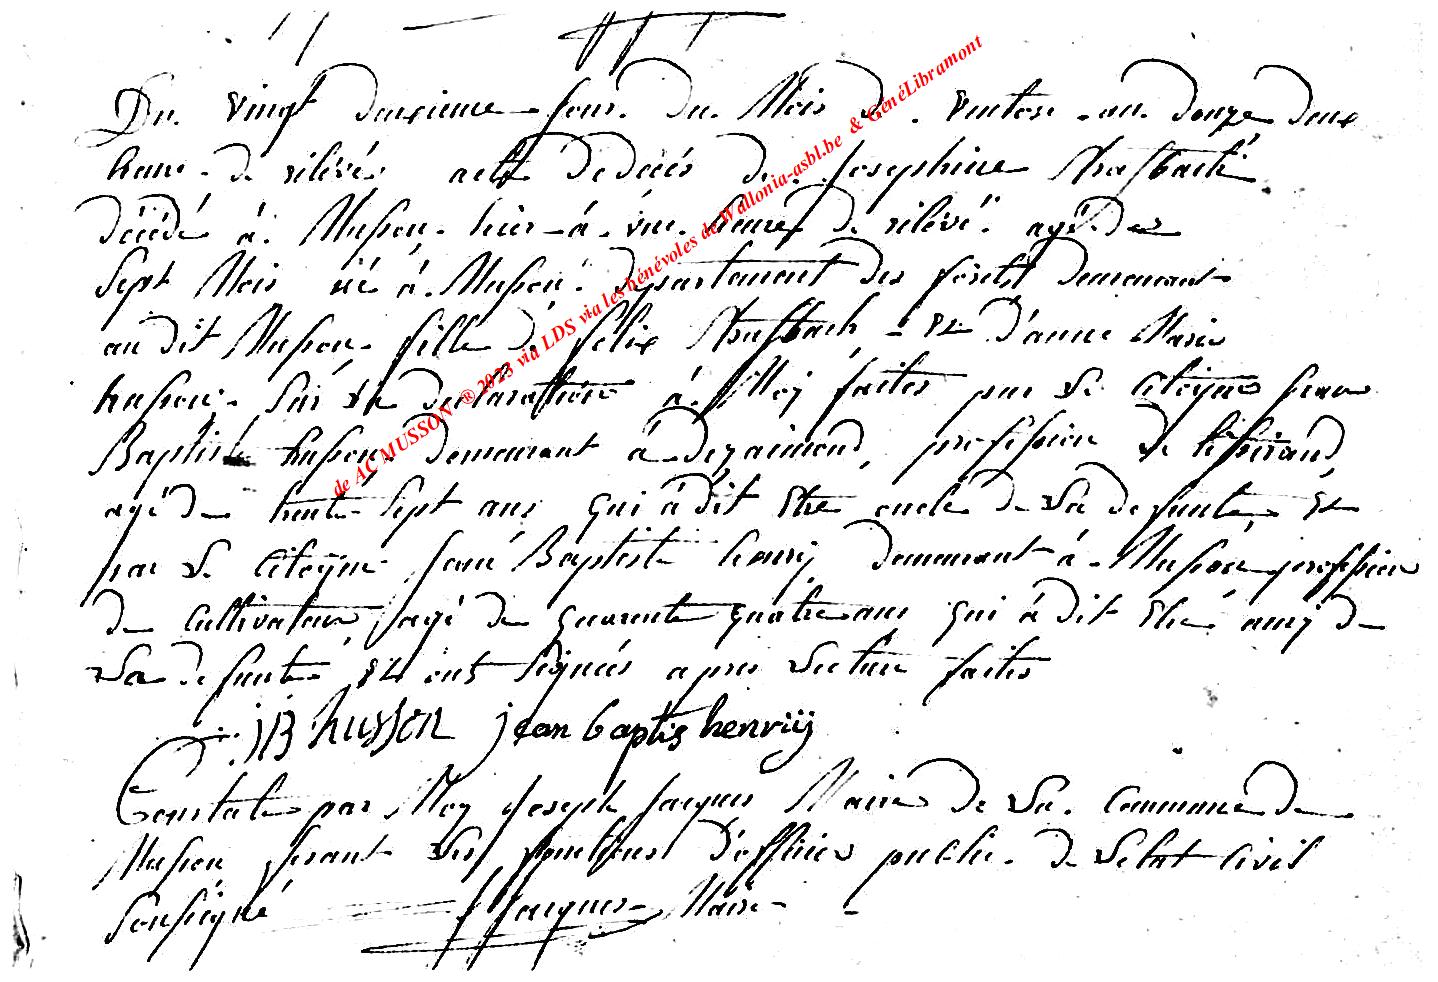 Du vingt deuxieme jour du Mois de ventose an douze deux
heure de rélévé acte de décés de Josephine Strasbach
décédé à Musson hier à une heure de rélévé agé de
Sept Mois né à Musson département des forêts demeurant
au dit Musson fille de félix Strasbach et d'anne Marie
husson Sur la declaration à Moy faites par Le Citoyen jean
Baptiste husson demeurant à profession de
agé de trente Sept ans qui à dit Etre oncle de La defunte Et
par Le Citoÿen Jean Baptiste henrij demeurant à Musson profession
de Cultivateur agé de quarente quatre ans qui à dit Etre amÿ de
La defunte Et ont Signés apres Lecture faites
JB husson jean baptis henrÿ
Constaté par Moy Joseph Jacques Maire de La Commune de
Musson fesant Les fonctions d'officier public de L'etat Civil
Soussigné JJacques Maire
de ACMUSSON ® 2023 via LDS via les bénévoles de Wallonia-asbl.be & GenéLibramont